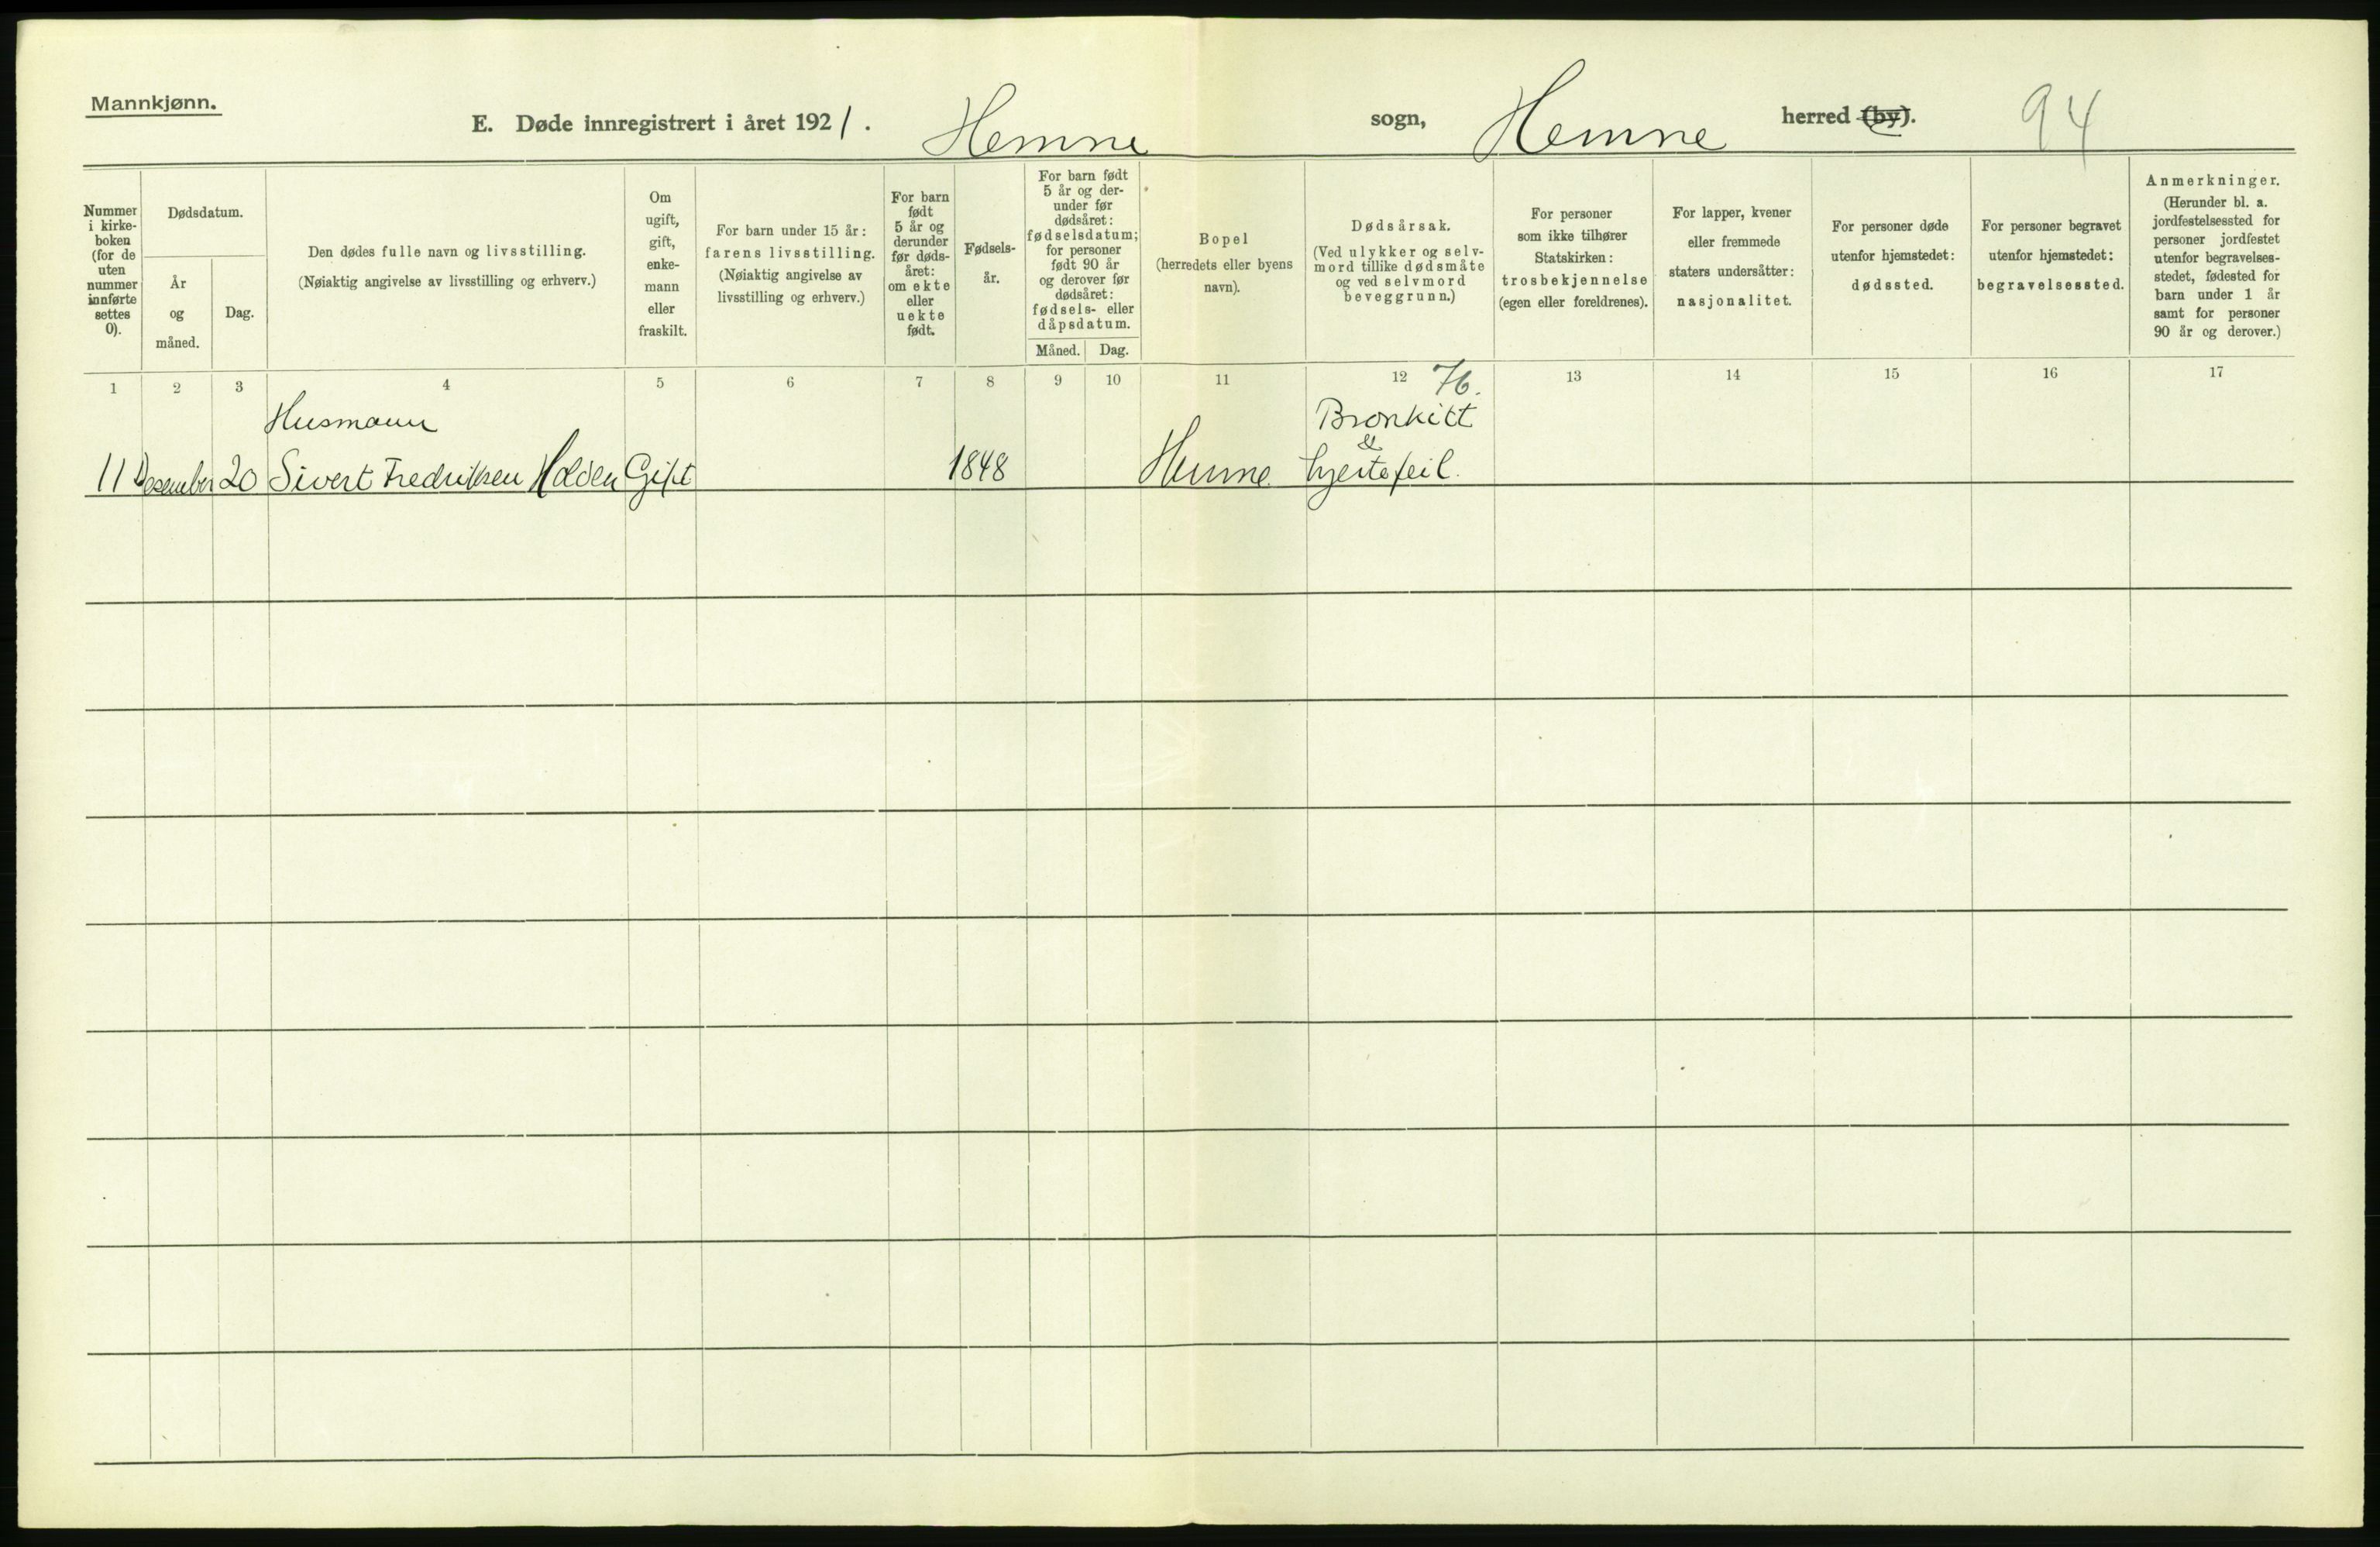 Mannkjønn.
E. Døde innregistrert i året 1921. Hemne sogn, Hemne herred (by). 94
Nummer
i kirke-
boken
(for de
uten
nummer
innførte
settes
0).
Dødsdatum.
År
og
måned.
Dag.
Den dødes fulle navn og livsstilling.
(Nøiaktig angivelse av livsstilling og erhverv.)
Om
ugift,
gift,
enke-
mann
eller
fraskilt.
For barn under 15 år:
farens livsstilling.
(Nøiaktig angivelse av
livsstilling og erhverv.)
For barn
født
5 år og
derunder
før døds-
året:
om ekte
eller
uekte
født.
Fødsels-
år.
For barn født
5 år og der-
under før
dødsåret:
fødselsdatum;
for personer
født 90 år
og derover før
dødsåret:
fødsels- eller
dåpsdatum.
Måned. Dag.
Bopel
(herredets eller byens
navn).
Dødsårsak.
(Ved ulykker og selv-
mord tillike dødsmåte
og ved selvmord
beveggrunn.)
For personer
som ikke tilhører
Statskirken:
trosbekjennelse
(egen eller foreldrenes).
For lapper, kvener
eller fremmede
staters undersåtter:
nasjonalitet.
For personer døde
utenfor hjemstedet:
dødssted.
For personer begravet
utenfor hjemstedet:
begravelsessted.
Anmerkninger.
(Herunder bl. a.
jordfestelsessted for
personer jordfestet
utenfor begravelses-
stedet, fødested for
barn under 1 år
samt for personer
90 år og derover.)
1 2 3 4 5 6 7 8 9 10 11 12 13 14 15 16 17
76.
Husmann
Bronkitt
&
11 Desember 20 Sivert Fredriksen Holden Gift 1848 Hemne hjertefeil.